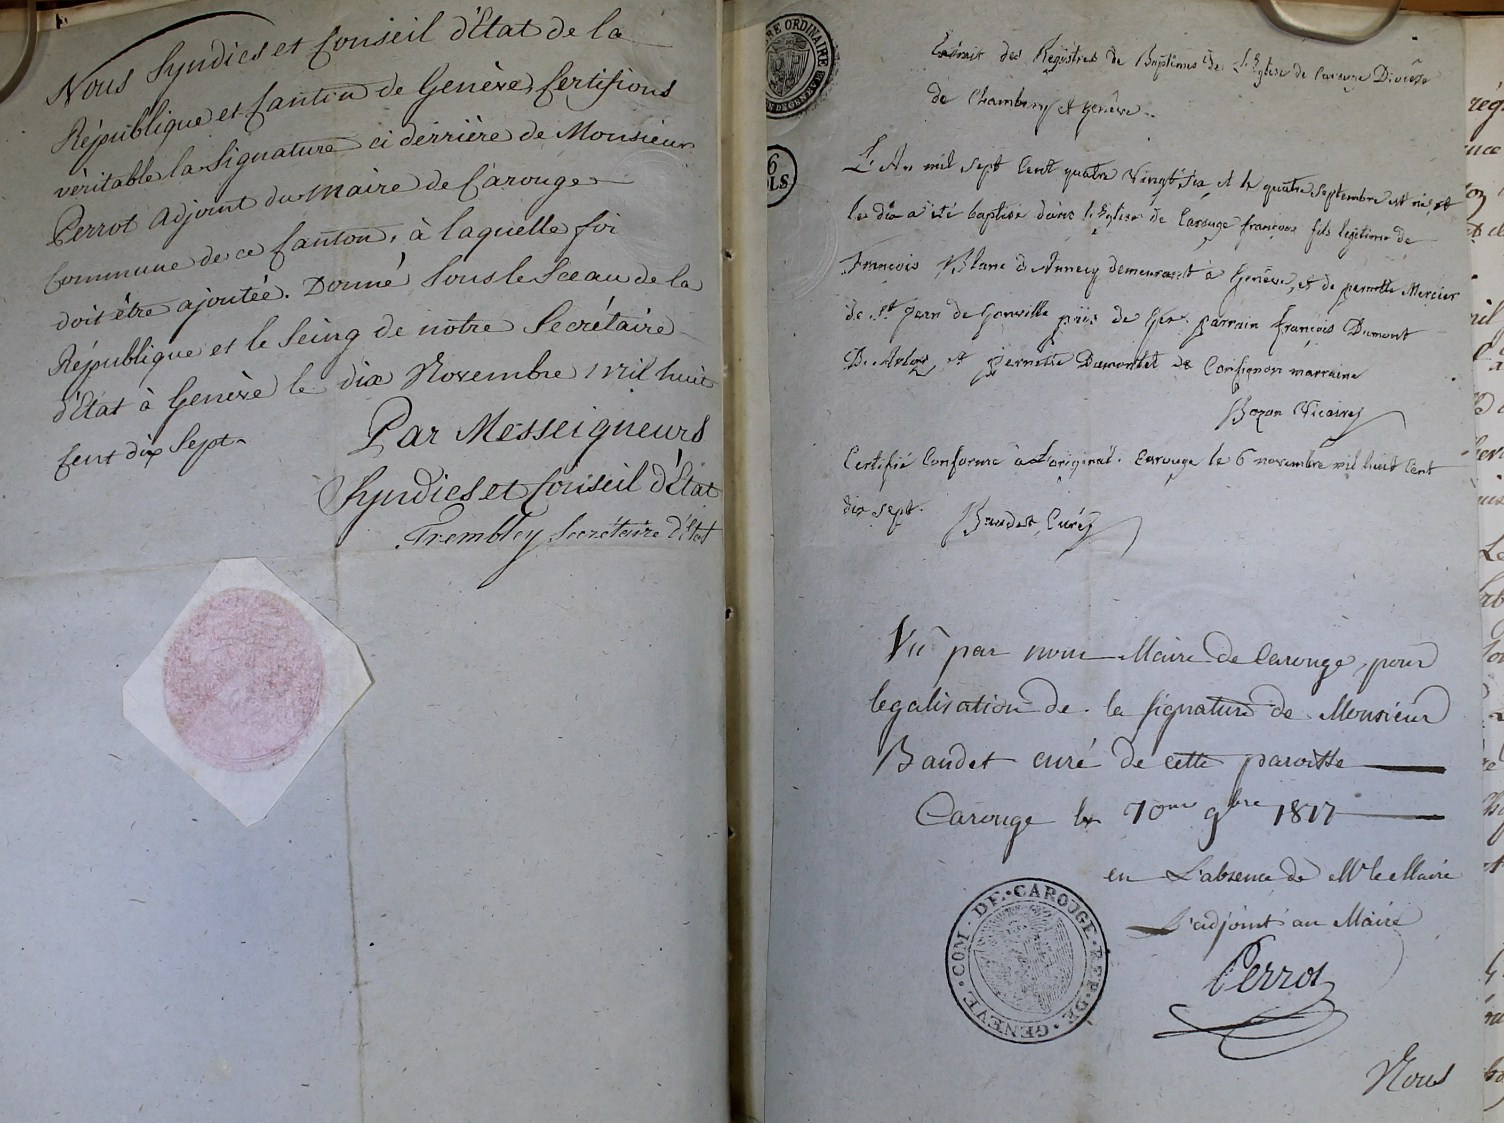 Nous Syndics et Conseil d'Etat de la
République et Canton de Genève Certifions
véritable la Signature ci derrière de Monsieur
Perrot Adjoint du Maire de Carouge
Commune de ce Canton, à laquelle foi
doit être ajoutée. Donné sous le Sceau de la
République et le Seing de notre Secrétaire
d'Etat à Genève le dix Novembre mil huit
Cent dix Sept.
Par Messeigneurs
Syndics et Conseil d'Etat
Trembley Secrétaire d'Etat
RE ORDINAIRE
DE GENEVE
6
OLS
Extrait des Registres de Baptêmes de L'Eglise de Carouge Diocèse
de Chambery et Genève.
L'An mil sept Cent quatre Vingt six et le quatre Septembre est né, et
le dix a été baptisé dans L'Eglise de Carouge françois fils legitime de
François Blanc d'Annecy demeurant à Genève, et de pernette Mercier
de St Jean de Gonville païs de Gex parrain françois Dumont
et pernette Dumontet de Confignon marraine
Bozon Vicaire
Certifié Conforme à L'original. Carouge le 6 novembre mil huit Cent
dix sept. Baudet Curé
Vû par nous Maire de Carouge, pour
legalisation de la signature de Monsieur
Baudet curé de cette paroisse
Carouge le 7ome 9bre 1817
en L'absence de Mr le Maire
L'adjoint au Maire
Perrot
COM · DE · CAROUGE · REP · DE · GENEVE
Nous